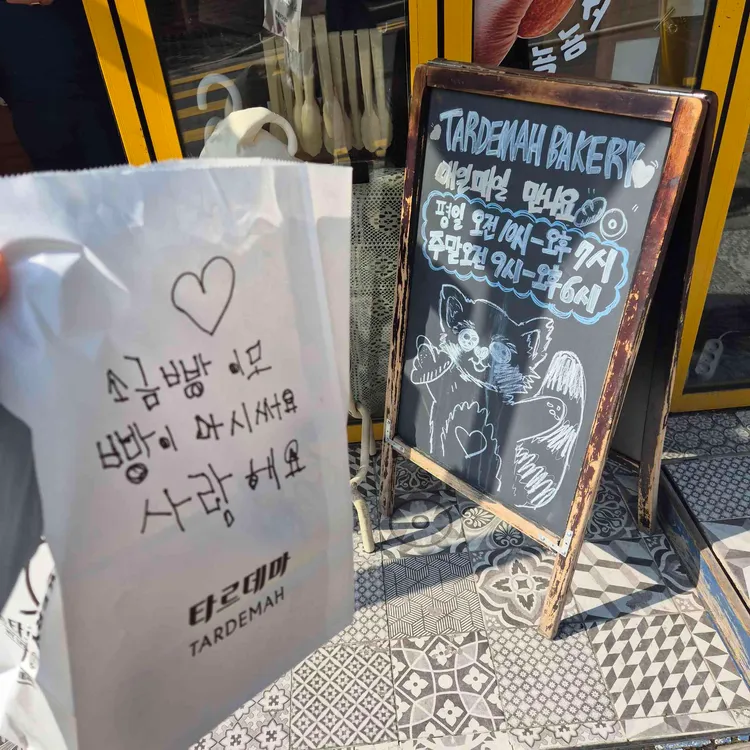 소금빵 이모
빵이 마시써요
사랑해요
타르데마
TARDEMAH
TARDEMAH BAKERY
매일매일 만나요
평일 오전 10시-오후 7시
주말오전 9시-오후6시